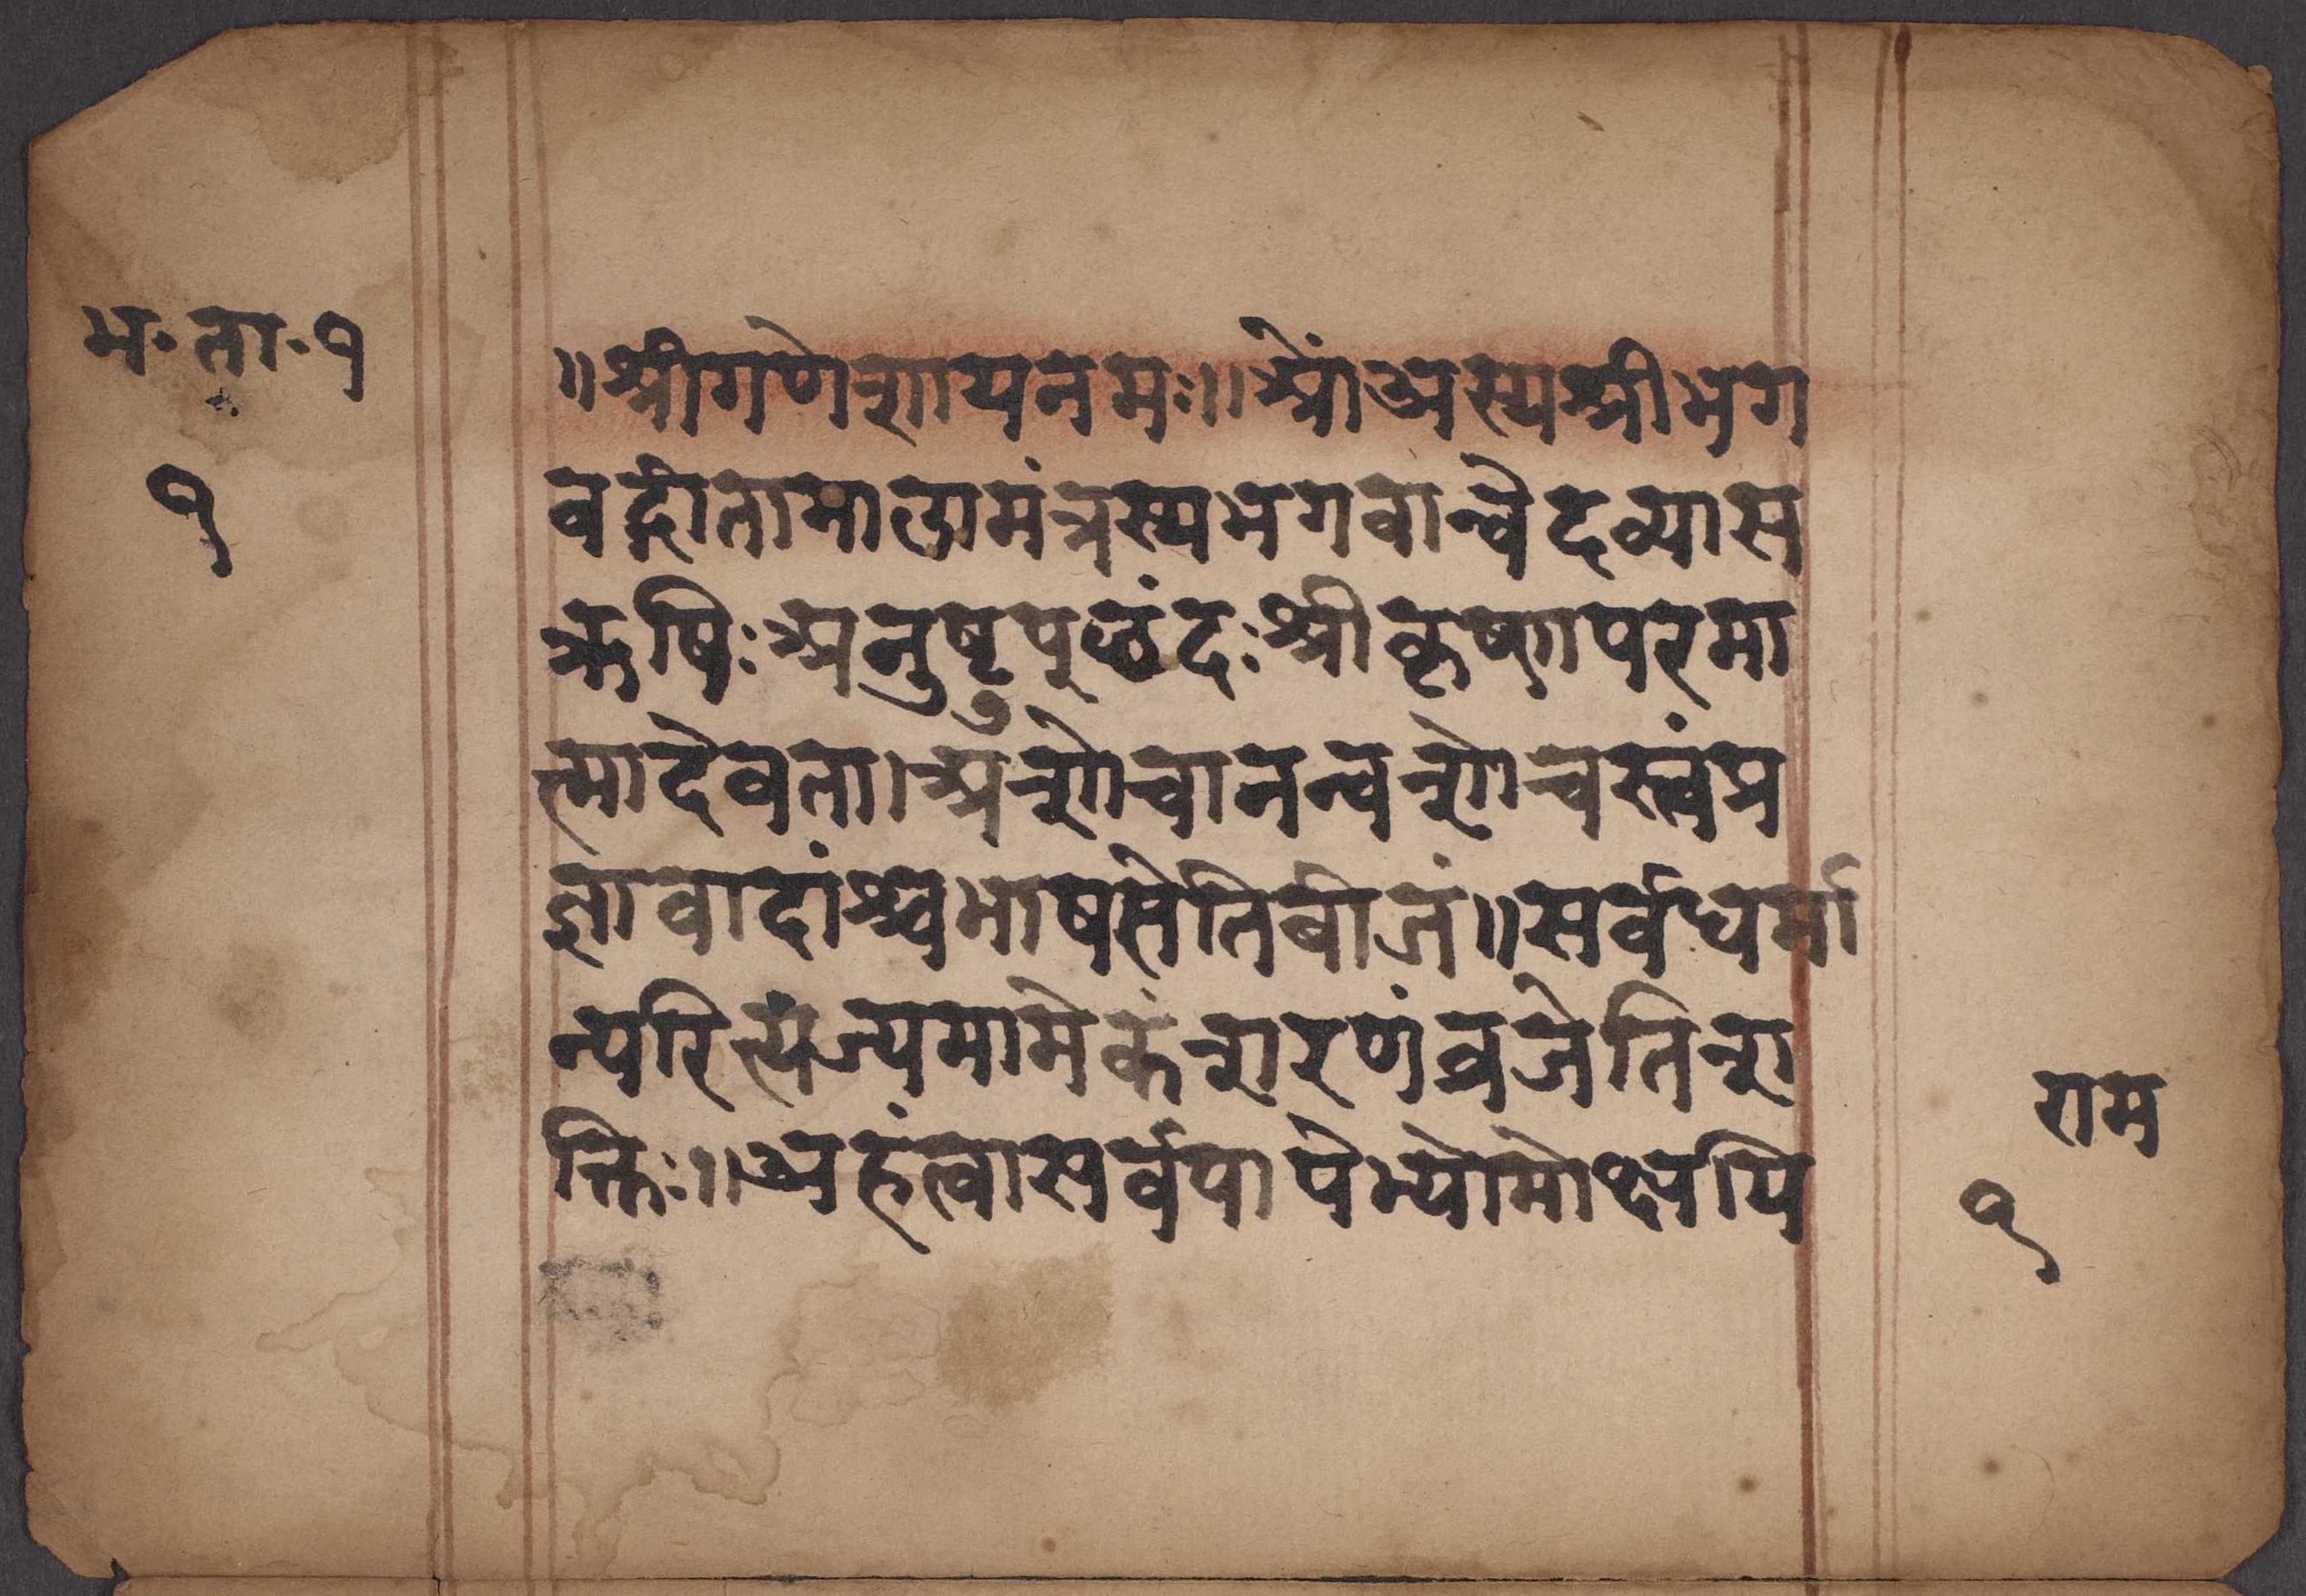 भ॰ता॰१
१
॥श्रीगणेशायनमः॥ओंअस्यश्रीभग
वद्गीतामालामंत्रस्यभगवान्वेदव्यास
ऋषिःअनुष्टुप्छंदःश्रीकृष्णपरमा
त्मादेवता।अशोचानन्वशोचस्त्वंप्र
ज्ञावादांश्चभाषसेतिबीजं॥सर्वधर्मा
न्परित्यज्यमामेकंशरणंव्रजेतिश
क्तिः॥अहंत्वासर्वपापेभ्योमोक्षयि
राम
१